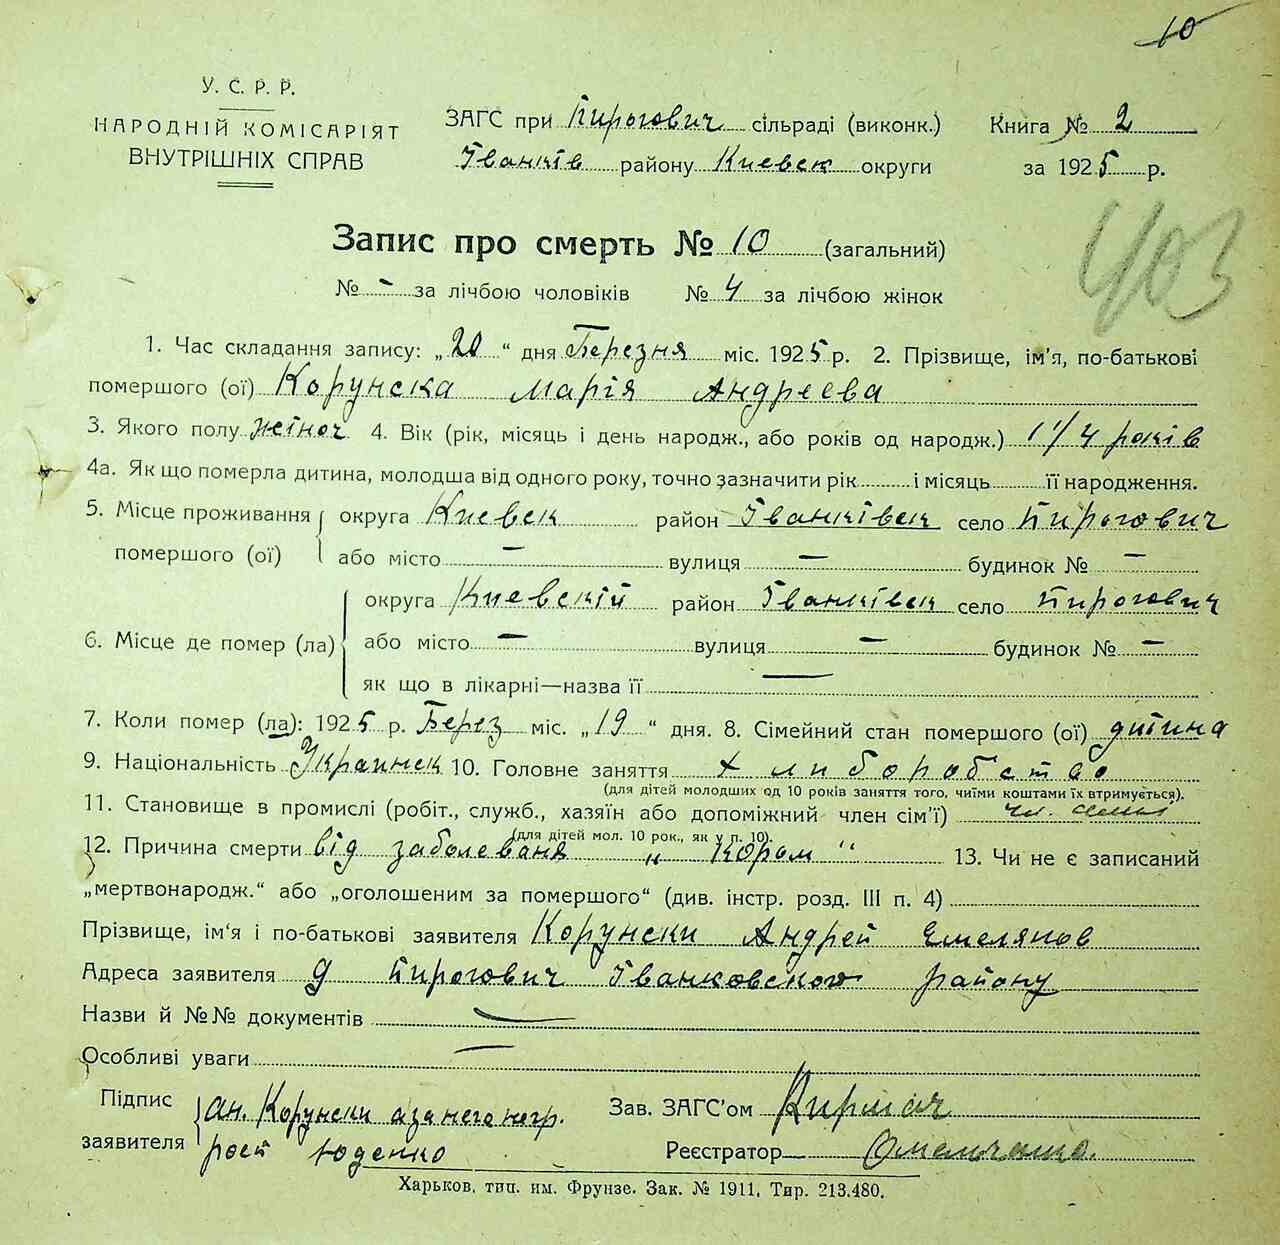 10
У. С. Р. Р.
НАРОДНІЙ КОМІСАРІЯТ
ВНУТРІШНІХ СПРАВ
ЗАГС при Пирогович сільраді (виконк.)
Іванків району Киевск округи
Книга № 2
за 1925 р.
403
Запис про смерть № 10 (загальний)
№ - за лічбою чоловіків № 4 за лічбою жінок
1. Час складання запису: „20“ дня Березня міс. 1925 р. 2. Прізвище, ім’я, по-батькові
помершого (ої) Корунска Марія Андреева
3. Якого полу жіноч 4. Вік (рік, місяць і день народж., або років од народж.) 1 1/4 років
4а. Як що померла дитина, молодша від одного року, точно зазначити рік і місяць її народження.
5. Місце проживання помершого (ої) округа Киевск район Іванківск село Пирогович
або місто — вулиця — будинок № —
6. Місце де помер (ла) округа Киевскій район Іванківск село Пирогович
або місто — вулиця — будинок № —
як що в лікарні—назва її —
7. Коли помер (ла): 1925 р. Берез міс. „19“ дня. 8. Сімейний стан помершого (ої) дитина
9. Національність Украинск 10. Головне заняття хлиборобство
(для дітей молодших од 10 років заняття того, чиїми коштами їх втримується).
11. Становище в промислі (робіт., служб., хазяїн або допоміжний член сім’ї) чл. семьі
(для дітей мол. 10 рок., як у п. 10).
12. Причина смерти від заболеваня „Кором“ 13. Чи не є записаний
„мертвонародж.“ або „оголошеним за помершого“ (див. інстр. розд. III п. 4)
Прізвище, ім’я і по-батькові заявителя Корунски Андрей Емелянов
Адреса заявителя д Пирогович Іванковского району
Назви й №№ документів —
Особливі уваги —
Підпис заявителя ан. Корунски а за него негр.
рост Юденко
Зав. ЗАГС’ом Кирмач
Реєстратор
Харьков, тип. им. Фрунзе. Зак. № 1911, Тир. 213.480.